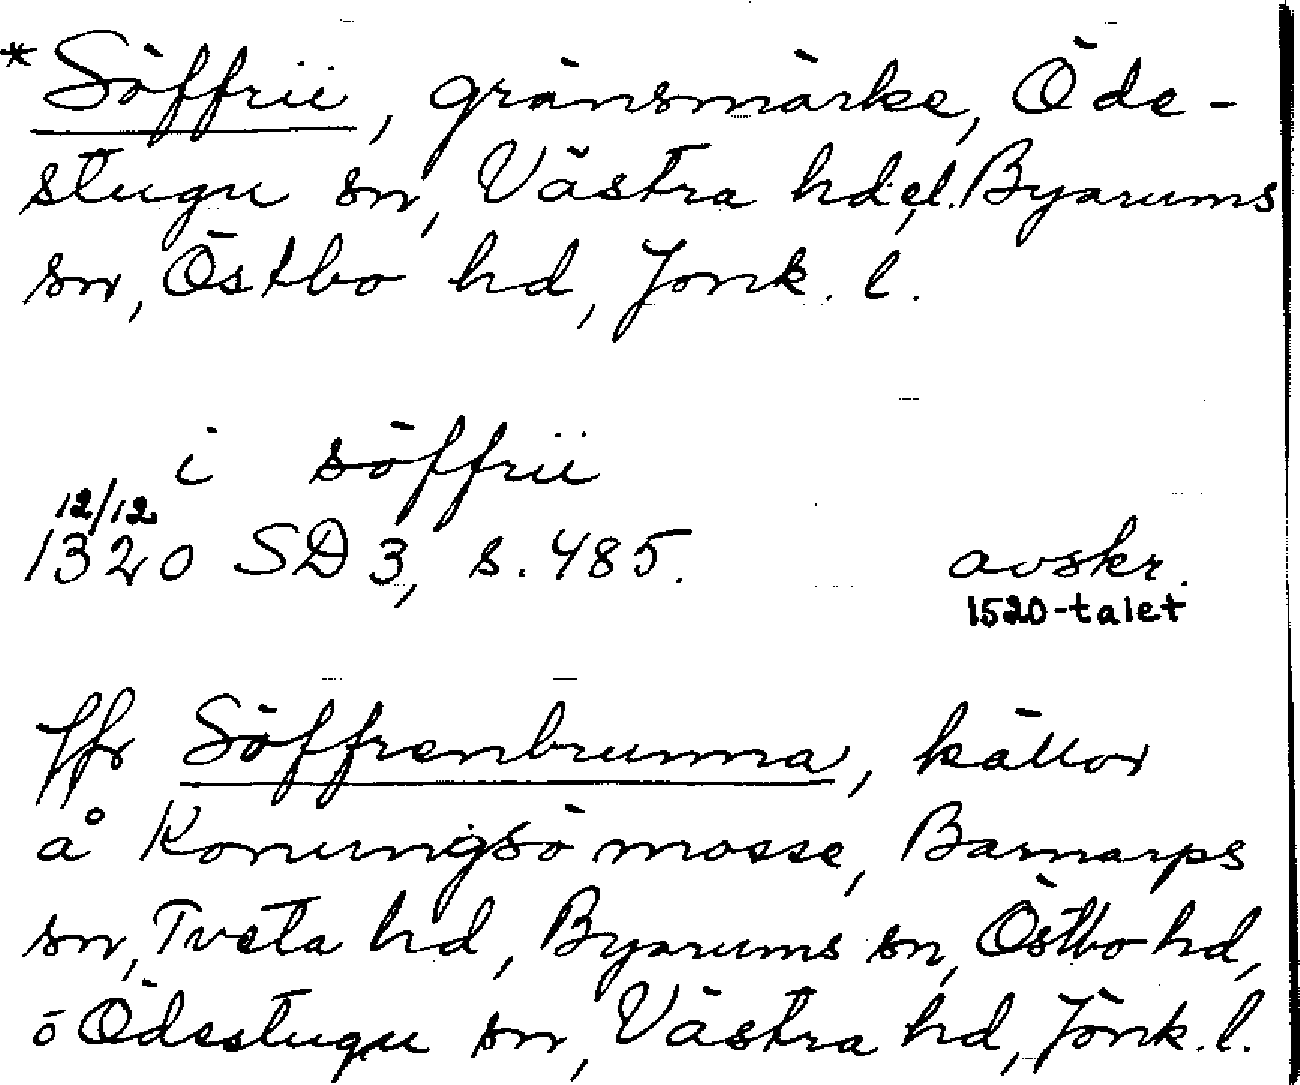 *Söffrii, gränsmärke, Öde-
stugu sn, Västra hd el. Byarums
sn, Östbo hd, Jönk. l.
i söffrii
12/12
1320 SD 3, s. 485. avskr.
1520-talet
Jfr Söffrenbrunna, källor
å Konungsö mosse, Barnarps
sn, Tveta hd, Byarums sn, Östbo hd,
o Ödestugu sn, Västra hd, Jönk. l.